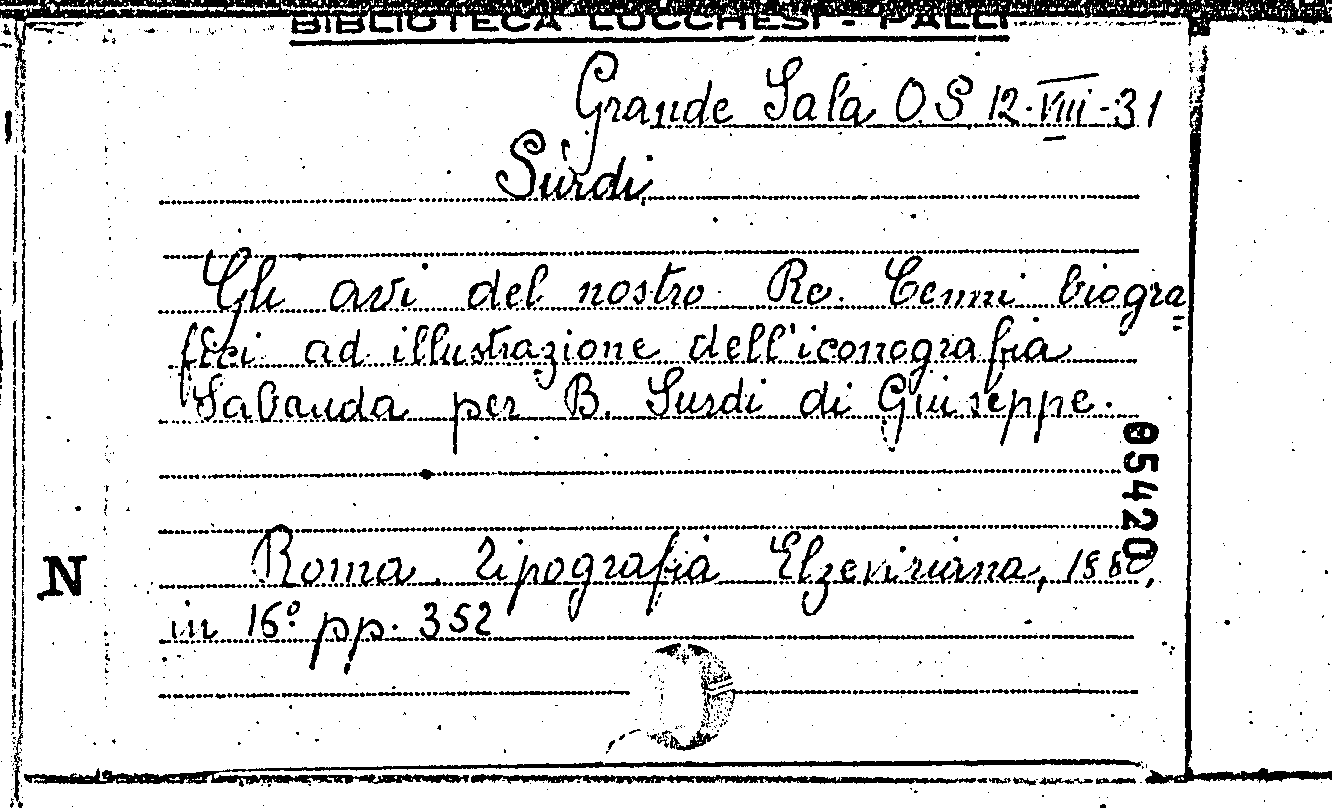 BIBLIOTECA LUCCHESI - PALLI
Grande Sala O S 12·VIII-31
Surdi
Gli avi del nostro Re. Cenni biogra=
fici ad illustrazione dell'iconografia
Sabauda per B. Surdi di Giuseppe.
05420
Roma. Tipografia Elzeviriana,
N
in 16º pp. 352